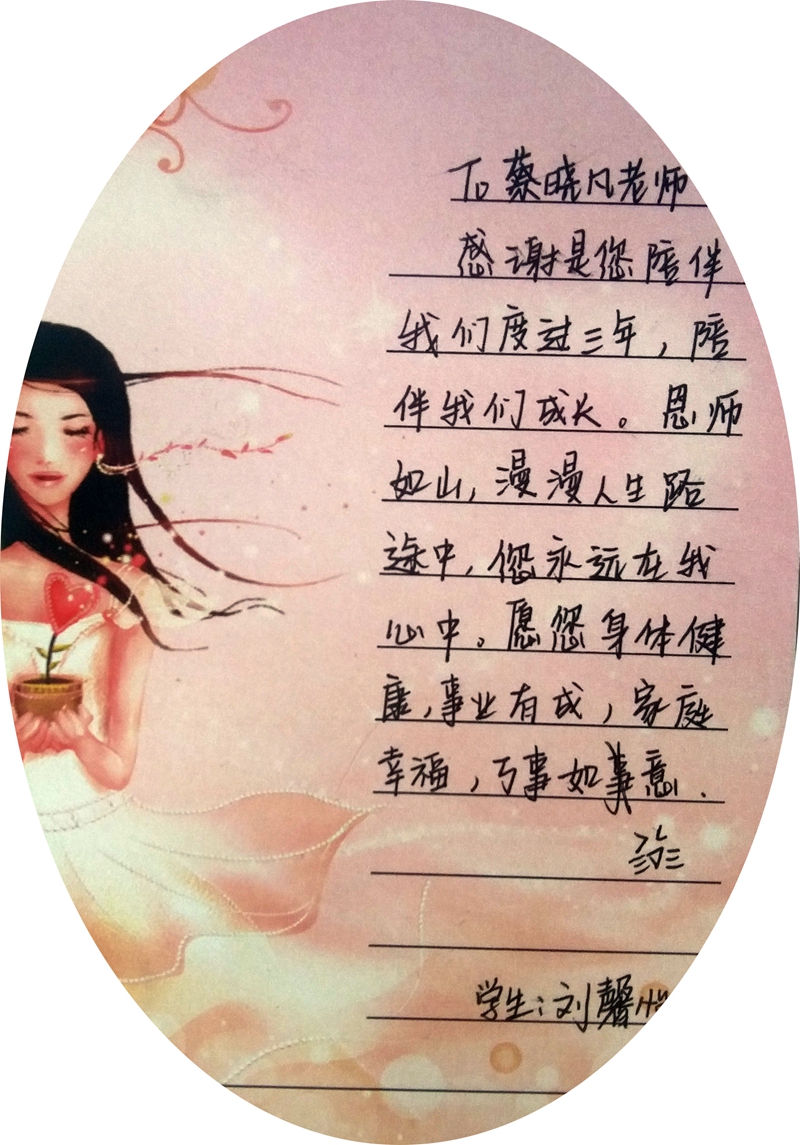 To 蔡晓凡老师
感谢是您陪伴
我们度过三年，陪
伴我们成长。恩师
如山，漫漫人生路
途中，您永远在我
心中。愿您身体健
康，事业有成，家庭
幸福，万事如意.
学生：刘馨